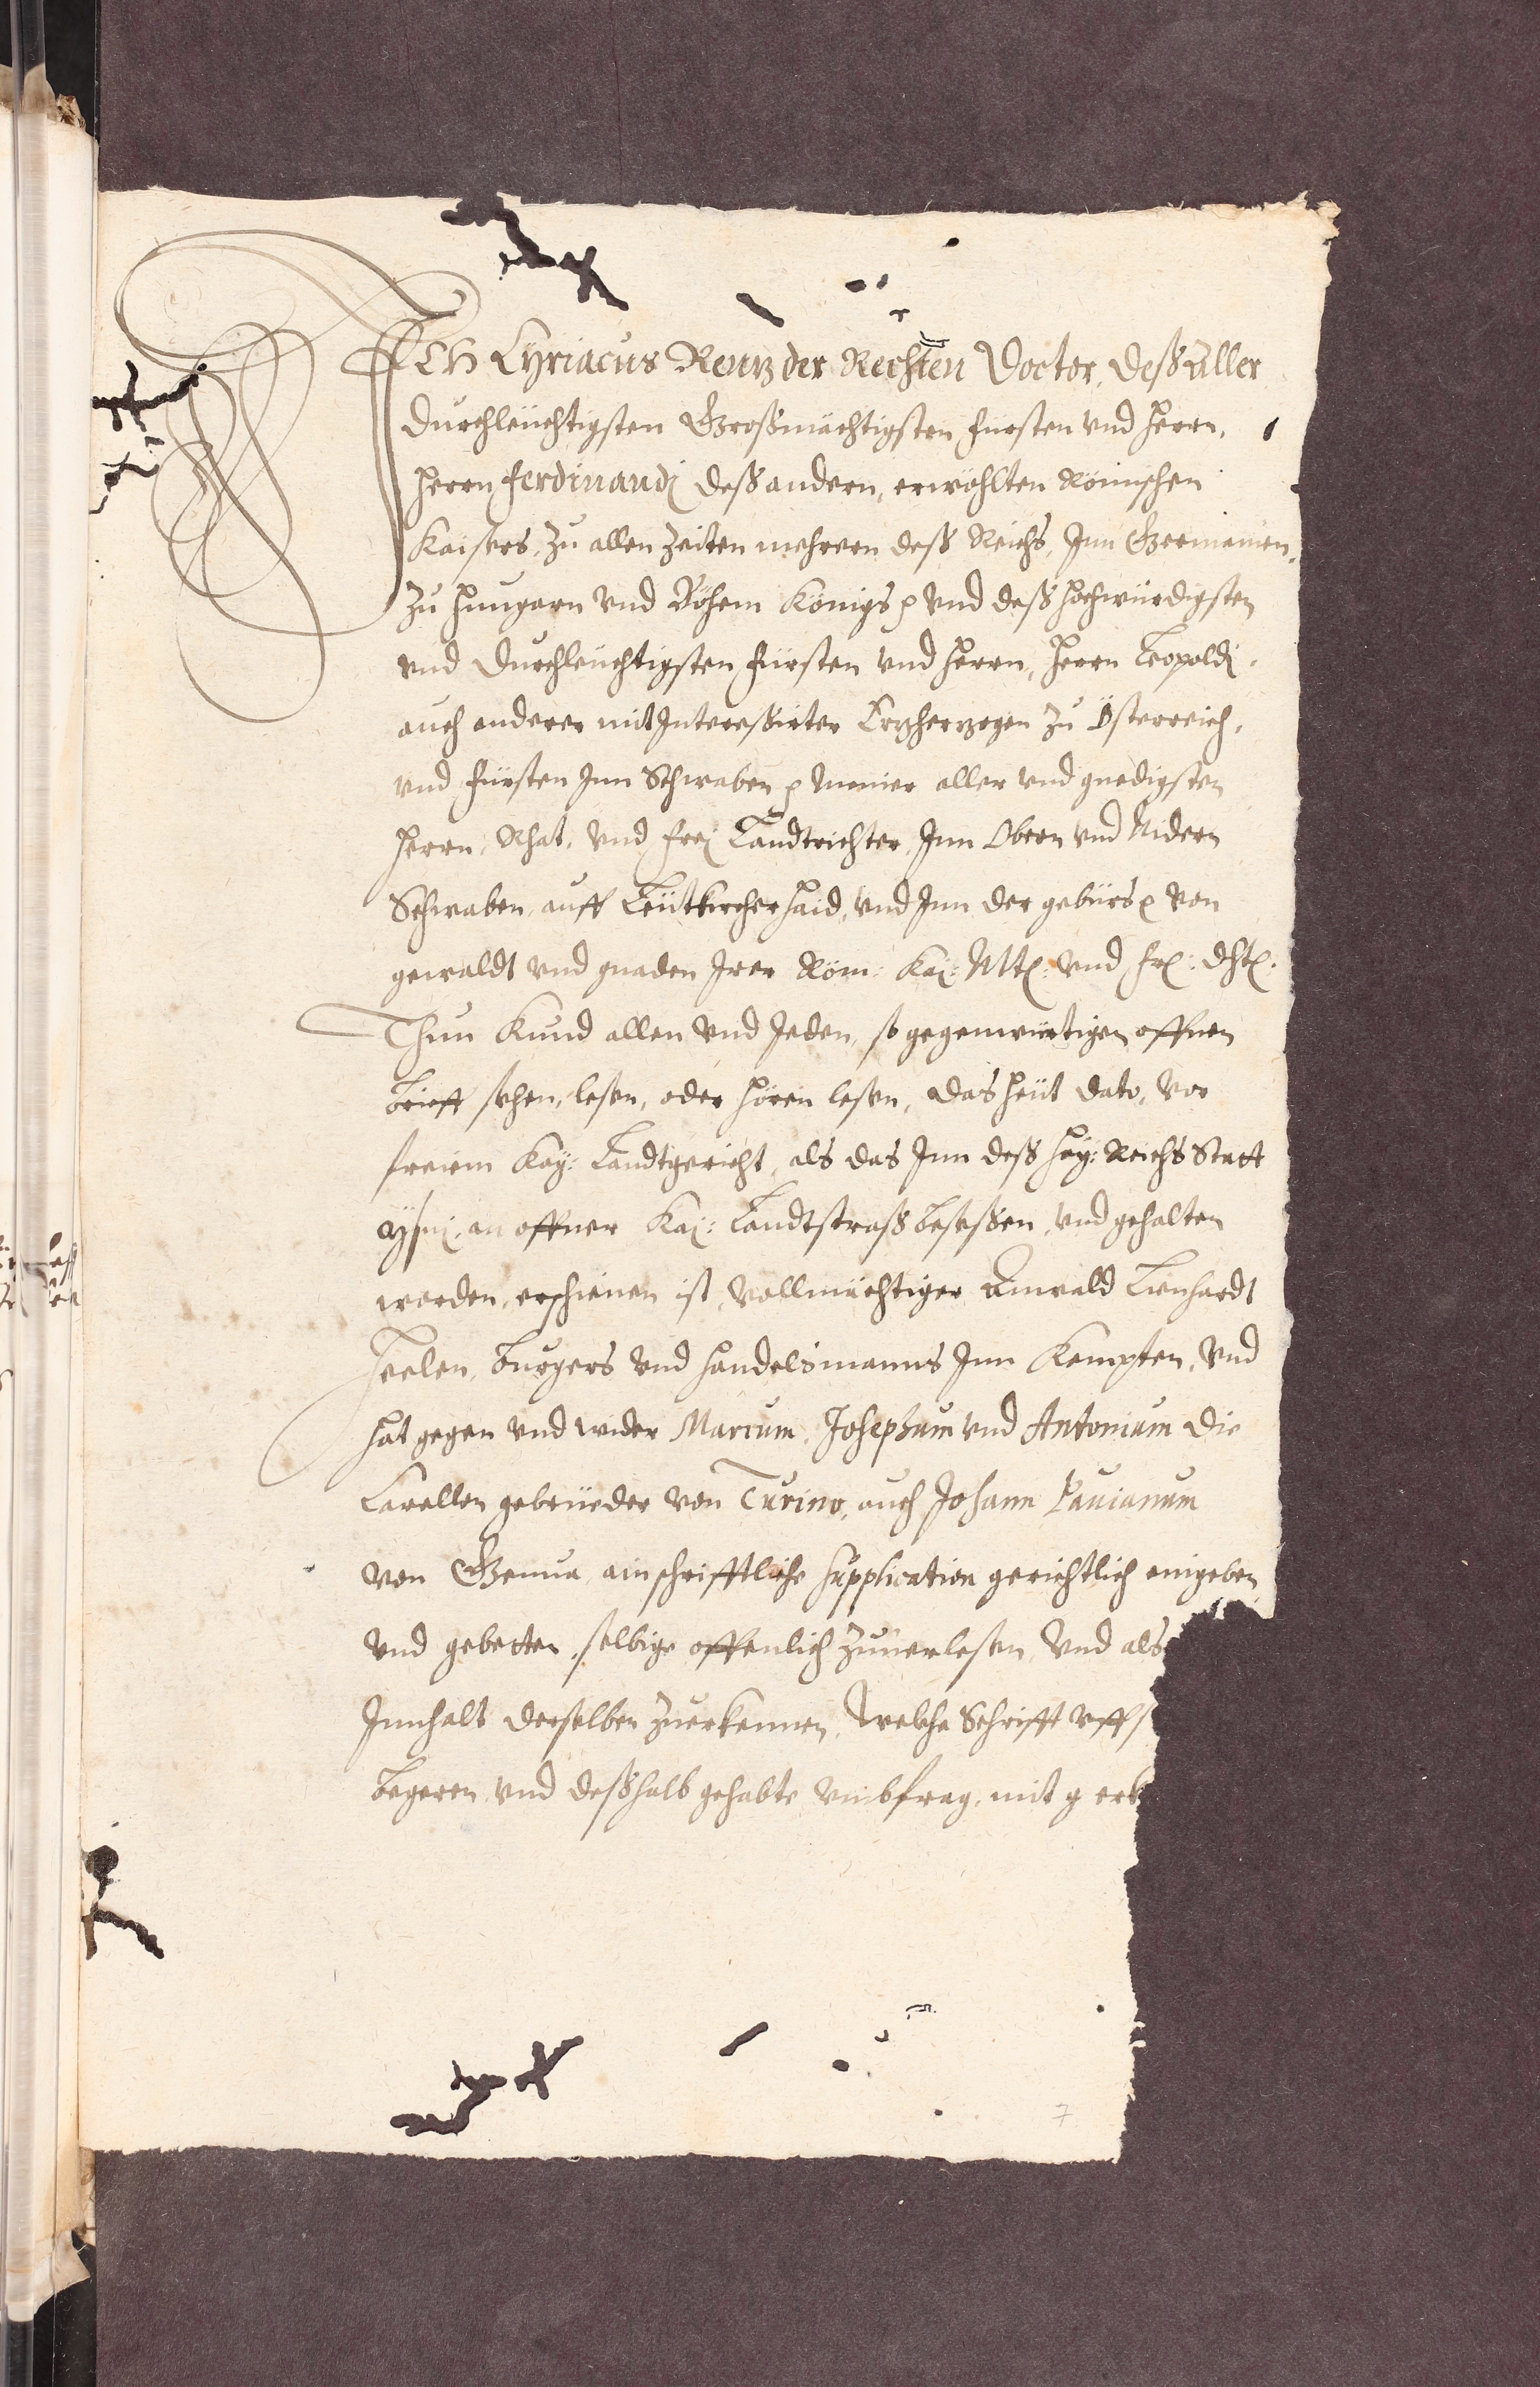 ICH Cyriacus Rentz der Rechten Doctor, deß aller
durchleüchtigsten Großmächtigsten fürsten vnd Herrn,
Herrn Ferdinandj deß andern, erwöhlten Römischen
Kaisers, zu allen Zeiten mehrern deß Reichs, Inn Germanien,
zu Hungarn vnd Böhem Königs p vnd deß hochwürdigsten
vnd Durchleüchtigsten fürsten vnd Herrn, Herrn Leopoldj,
auch anderer mit Intereßirter Ertzhertzogen zu Österreich,
vnd fürsten Inn Schwaben p Meiner aller vnd gnedigsten
Herrn, Rhat, vnd frej Landtrichter, Inn Obern vnd Nidern
Schwaben, auff Leütkircher Haid, vnd Inn der gebürs p von
gewaldt vnd gnaden Irer Röm: Kaj: Mtt: vnd frl: dht:
Thun Kund allen vnd Jeden, so gegenwürtigen offnen
brieff sehen, lesen, oder hören lesen, das heüt dato, vor
freiem Kay: Landtgericht, als das Inn deß Hay: Reichs Statt
Ysnj, an offner Kaj: Landtstraß beseßen, vnd gehalten
worden, erschienen ist, vollmächtiger Anwald Lenhardt
Heelen, burgers vnd handelsmanns Inn Kempten, vnd
hat gegen vnd wider Marcum, Josephum vnd Antonium die
Carellen gebrüeder von Turino, auch Johann Pauianum
von Genua, ain schrifftliche supplication gerichtlich eingeben,
vnd gebetten, selbige offenlich zuuerlesen, vnd als
Innhalt derselben zuerkennen, welche Schrifft vff s
begeren, vnd deßhalb gehabte vmbfrag, mit g erk
7